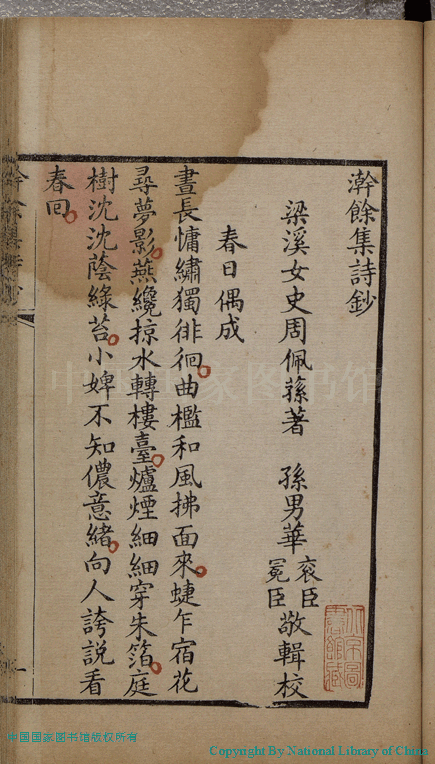 澣餘集詩鈔
梁溪女史周佩蓀著 孫男華袞臣冕臣敬輯校
春日偶成
晝長慵繡獨徘徊曲檻和風拂面來蜨乍宿花
尋夢影燕纔掠水轉樓臺爐煙細細穿朱箔庭
樹沈沈蔭綠苔小婢不知儂意緒向人誇説看
春回
中国国家图书馆
中国国家图书馆版权所有
Copyright By National Library of China